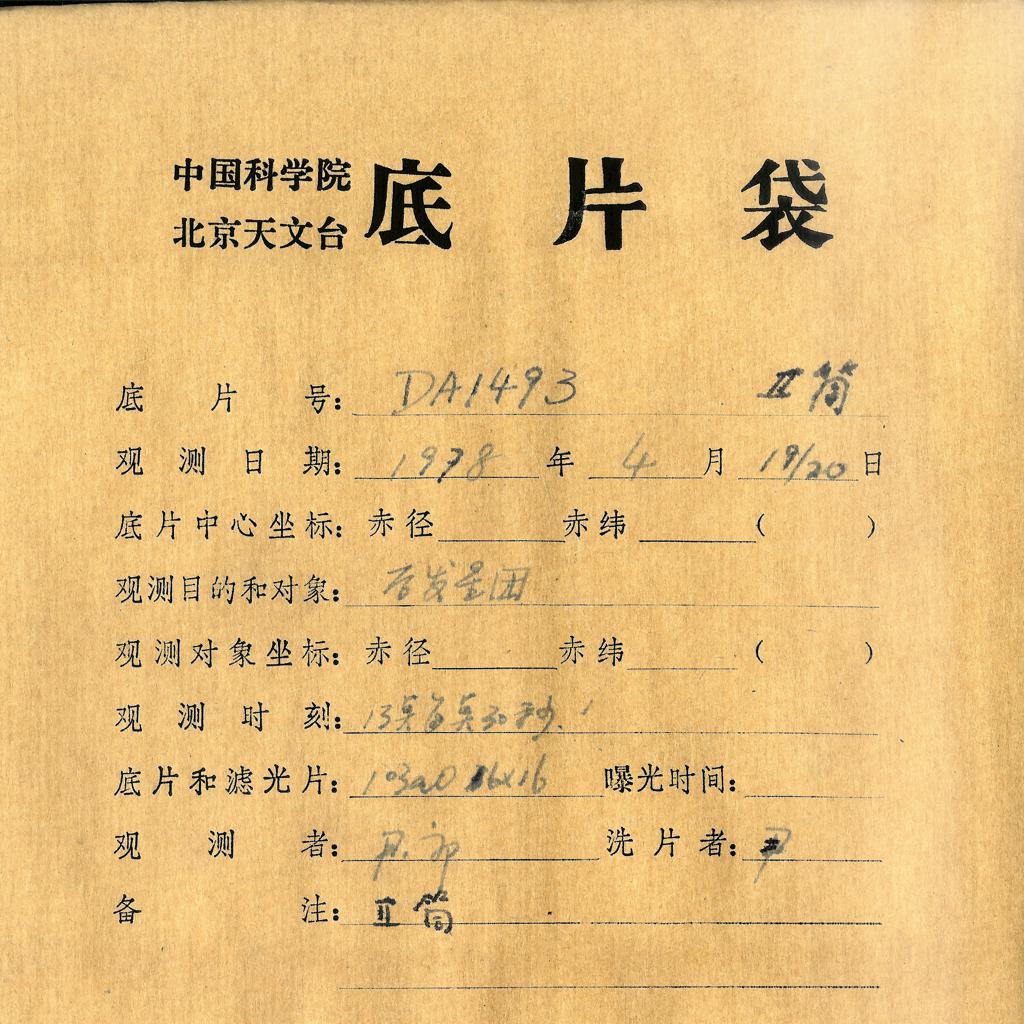 中国科学院
北京天文台
底片袋
底片号： DA1493 II筒
观测日期： 1978 年 4 月 19/20 日
底片中心坐标： 赤径 赤纬 （ ）
观测目的和对象： 后发星团
观测对象坐标： 赤径 赤纬 （ ）
观测时刻： 13点 30秒
底片和滤光片： 103aO 16x16 曝光时间：
观测者： 尹. 洗片者： 尹
备注： II筒